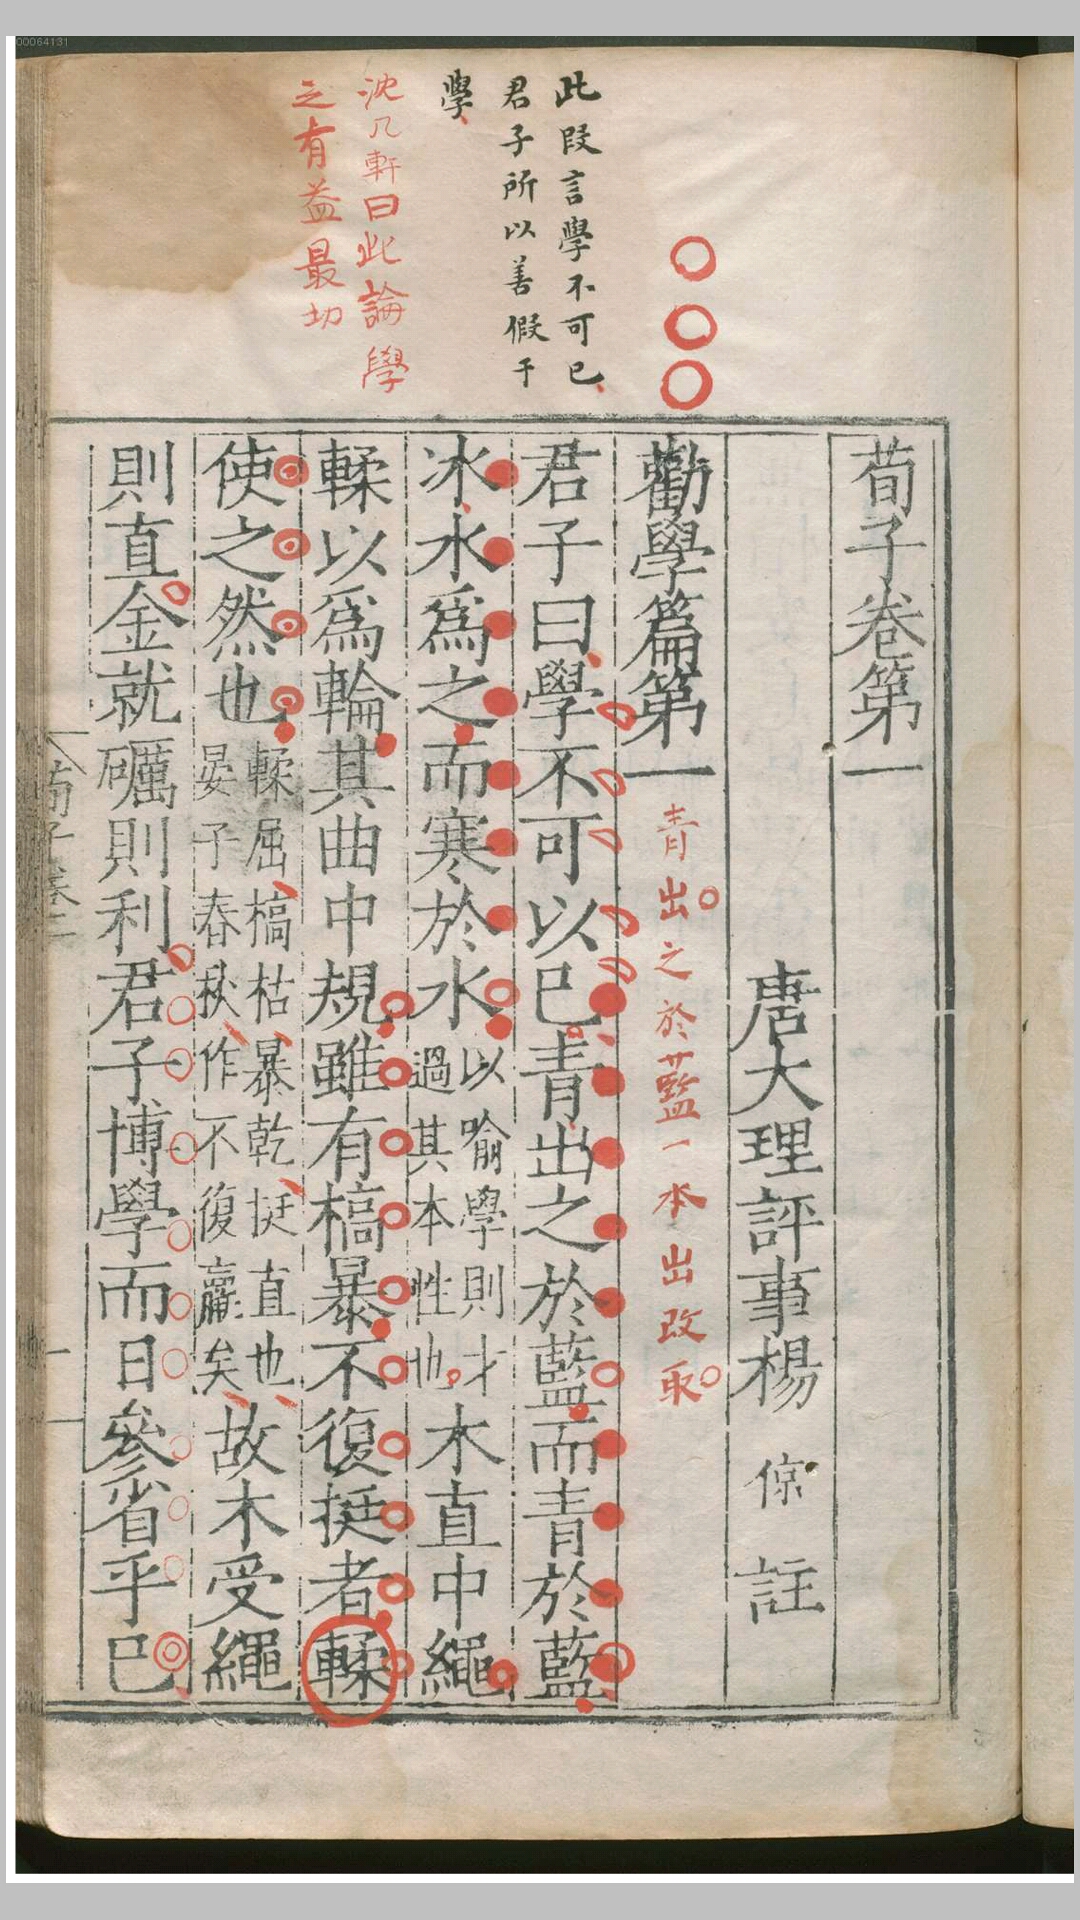 00064131
此段言學不可已
君子所以善假于
學
沈几軒曰此論學
之有益最切
荀子卷第一
唐大理評事楊倞註
勸學篇第一
青出之於藍一本出改取
君子曰學不可以已青出之於藍而青於藍
冰水爲之而寒於水以喻學則才過其本性也木直中繩
輮以爲輪其曲中規雖有槁暴不復挺者輮
使之然也輮屈槁枯暴乾挺直也晏子春秋作不復羸矣故木受繩
則直金就礪則利君子博學而日參省乎已